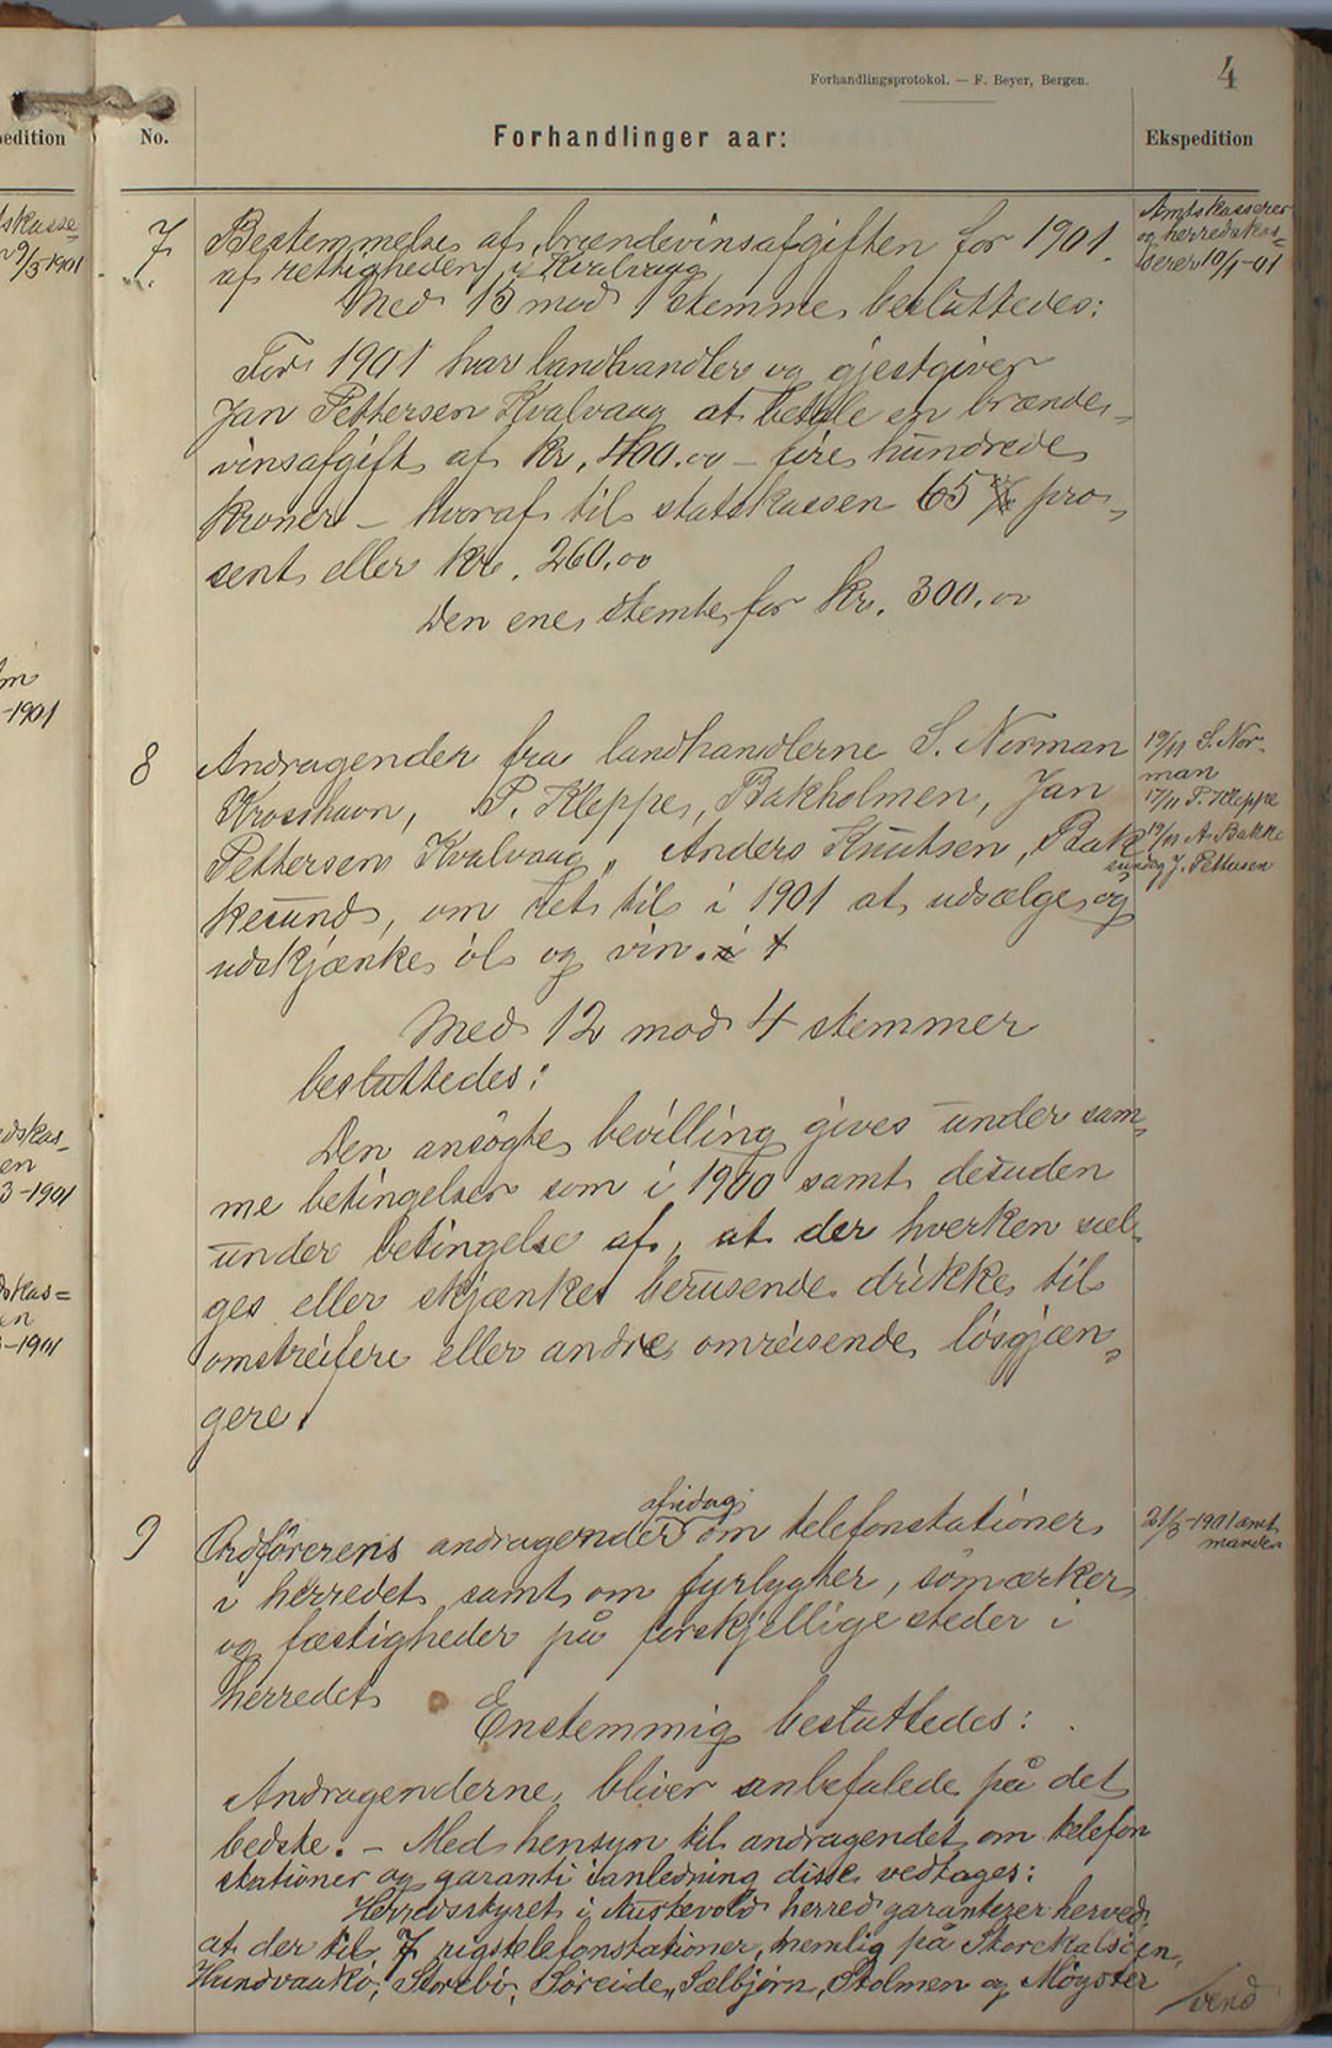 Forhandlingsprotokol. — F. Beyer, Bergen.
4
pedition
No.
Forhandlinger aar:
Ekspedition
tskasse=
9/3-1901
7
Bestemmelse af brændevinsafgiften for 1901.
af rettigheden i Kvalvaag
Amtskasserer
og herredskas=
serer 10/1-01
Med 15 mod 1 stemme besluttedes:
For 1901 har landhandler og gjestgiver
Jan Pettersen Kvalvaag at betale en brænde-
vinsafgift af kr. 400.00 – fire hundrede
kroner – hvoraf til statskassen 65 pro-
sent eller kr. 260.00
Den ene stemte for kr. 300.00
-1901
8
Andragender fra landhandlerne S. Norman
Krosshavn, P. Kleppe, Bakholmen, Jan
Pettersen Kvalvaag, Anders Knutsen, Bak
kesund, om ret til i 1901 at udsælge og
udskjænke øl og vin.
19/11 S. Nor-
man
17/11 P. Kleppe
19/11 A. Bakke
sund og J. Pettersen
Med 12 mod 4 stemmer
besluttedes:
Den ansögte bevilling gives under sam-
me betingelser som i 1900 samt desuden
under betingelse af, at der hverken sæl-
ges eller skjænkes berusende drikke til
omstreifere eller andre omreisende lösgjæn-
gere.
dskas-
en
3-1901
dskas=
en
-1901
9
Ordförerens andragender afidag om telefonstationer
i herredet samt om fyrlygter, sömærker
og fæstigheder på forskjellige steder i
herredet
21/3-1901 amt
manden
Enstemmig besluttedes:
Andragenderne bliver anbefalede på det
bedste. – Med hensyn til andragendet om telefon
stationer og garanti i anledning disse vedtages:
Herredsstyret i Austevold herred garanterer herved,
at der til 7 rigstelefonstationer, nemlig på Storekalsöen,
Hundvaakö, Storebö, Söreide, Sælbjörn, Stolmen og Mögster
/vend